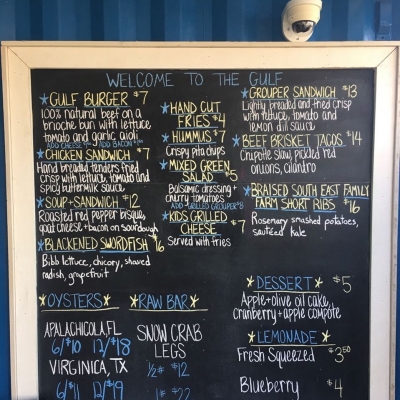 WELCOME TO THE GULF
GULF BURGER $7
100% natural beef on a
brioche bun with lettuce
tomato and garlic aioli
ADD CHEESE ADD BACON
CHICKEN SANDWICH $7
Hand breaded tenders fried
crisp with lettuce, tomato and
spicy buttermilk sauce
SOUP + SANDWICH $12
Roasted red pepper bisque,
goat cheese + bacon on sourdough
BLACKENED SWORDFISH $16
Bibb lettuce, chicory, shaved
radish, grapefruit
HAND CUT
FRIES $4
HUMMUS $7
Crispy pita chips
MIXED GREEN
SALAD $5
Balsamic dressing +
cherry tomatoes
ADD GRILLED GROUPER $8
KIDS GRILLED
CHEESE $7
Served with fries
GROUPER SANDWICH $13
Lightly breaded and fried crisp
with lettuce, tomato and
lemon dill sauce
BEEF BRISKET TACOS $14
Chipotle slaw, pickled red
onions, cilantro
BRAISED SOUTH EAST FAMILY
FARM SHORT RIBS $16
Rosemary smashed potatoes,
sautéed kale
OYSTERS
APALACHICOLA, FL
6/$10 12/$18
VIRGINICA, TX
6/$11 12/$19
RAW BAR
SNOW CRAB
LEGS
1/2# $12
1# $22
DESSERT $5
Apple + olive oil cake,
cranberry + apple compote
LEMONADE
Fresh Squeezed $3.50
Blueberry $4